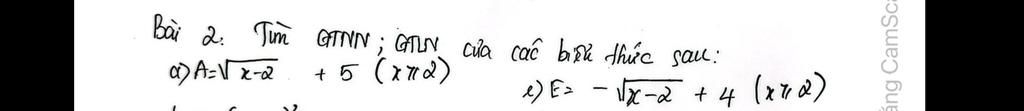 Bài 2: Tìm GTNN; GTLN của các biểu thức sau:
a) A=√x-2 + 5 (x≥2)
e) E= -√x-2 + 4 (x≥2)